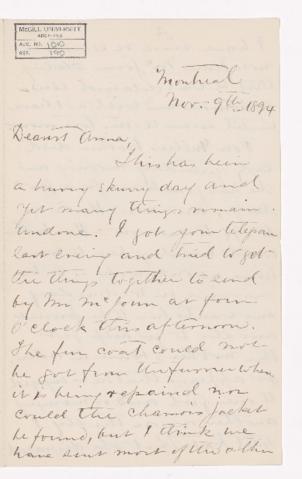 McGILL UNIVERSITY
ARCHIVES
ACC. NO. 1010
REF. 190
Montreal
Nov. 9th 1894
Dearest Anna
This has been
a hurry skurry day and
yet many things remain
undone. I got your telegram
last evening and tried to get
the things together to send
by Mr McJoun at four
O'clock this afternoon.
The fur coat could not
be got from the furrier where
it is being repaired nor
could the chamois jacket
be found, but I think we
have sent most of the other